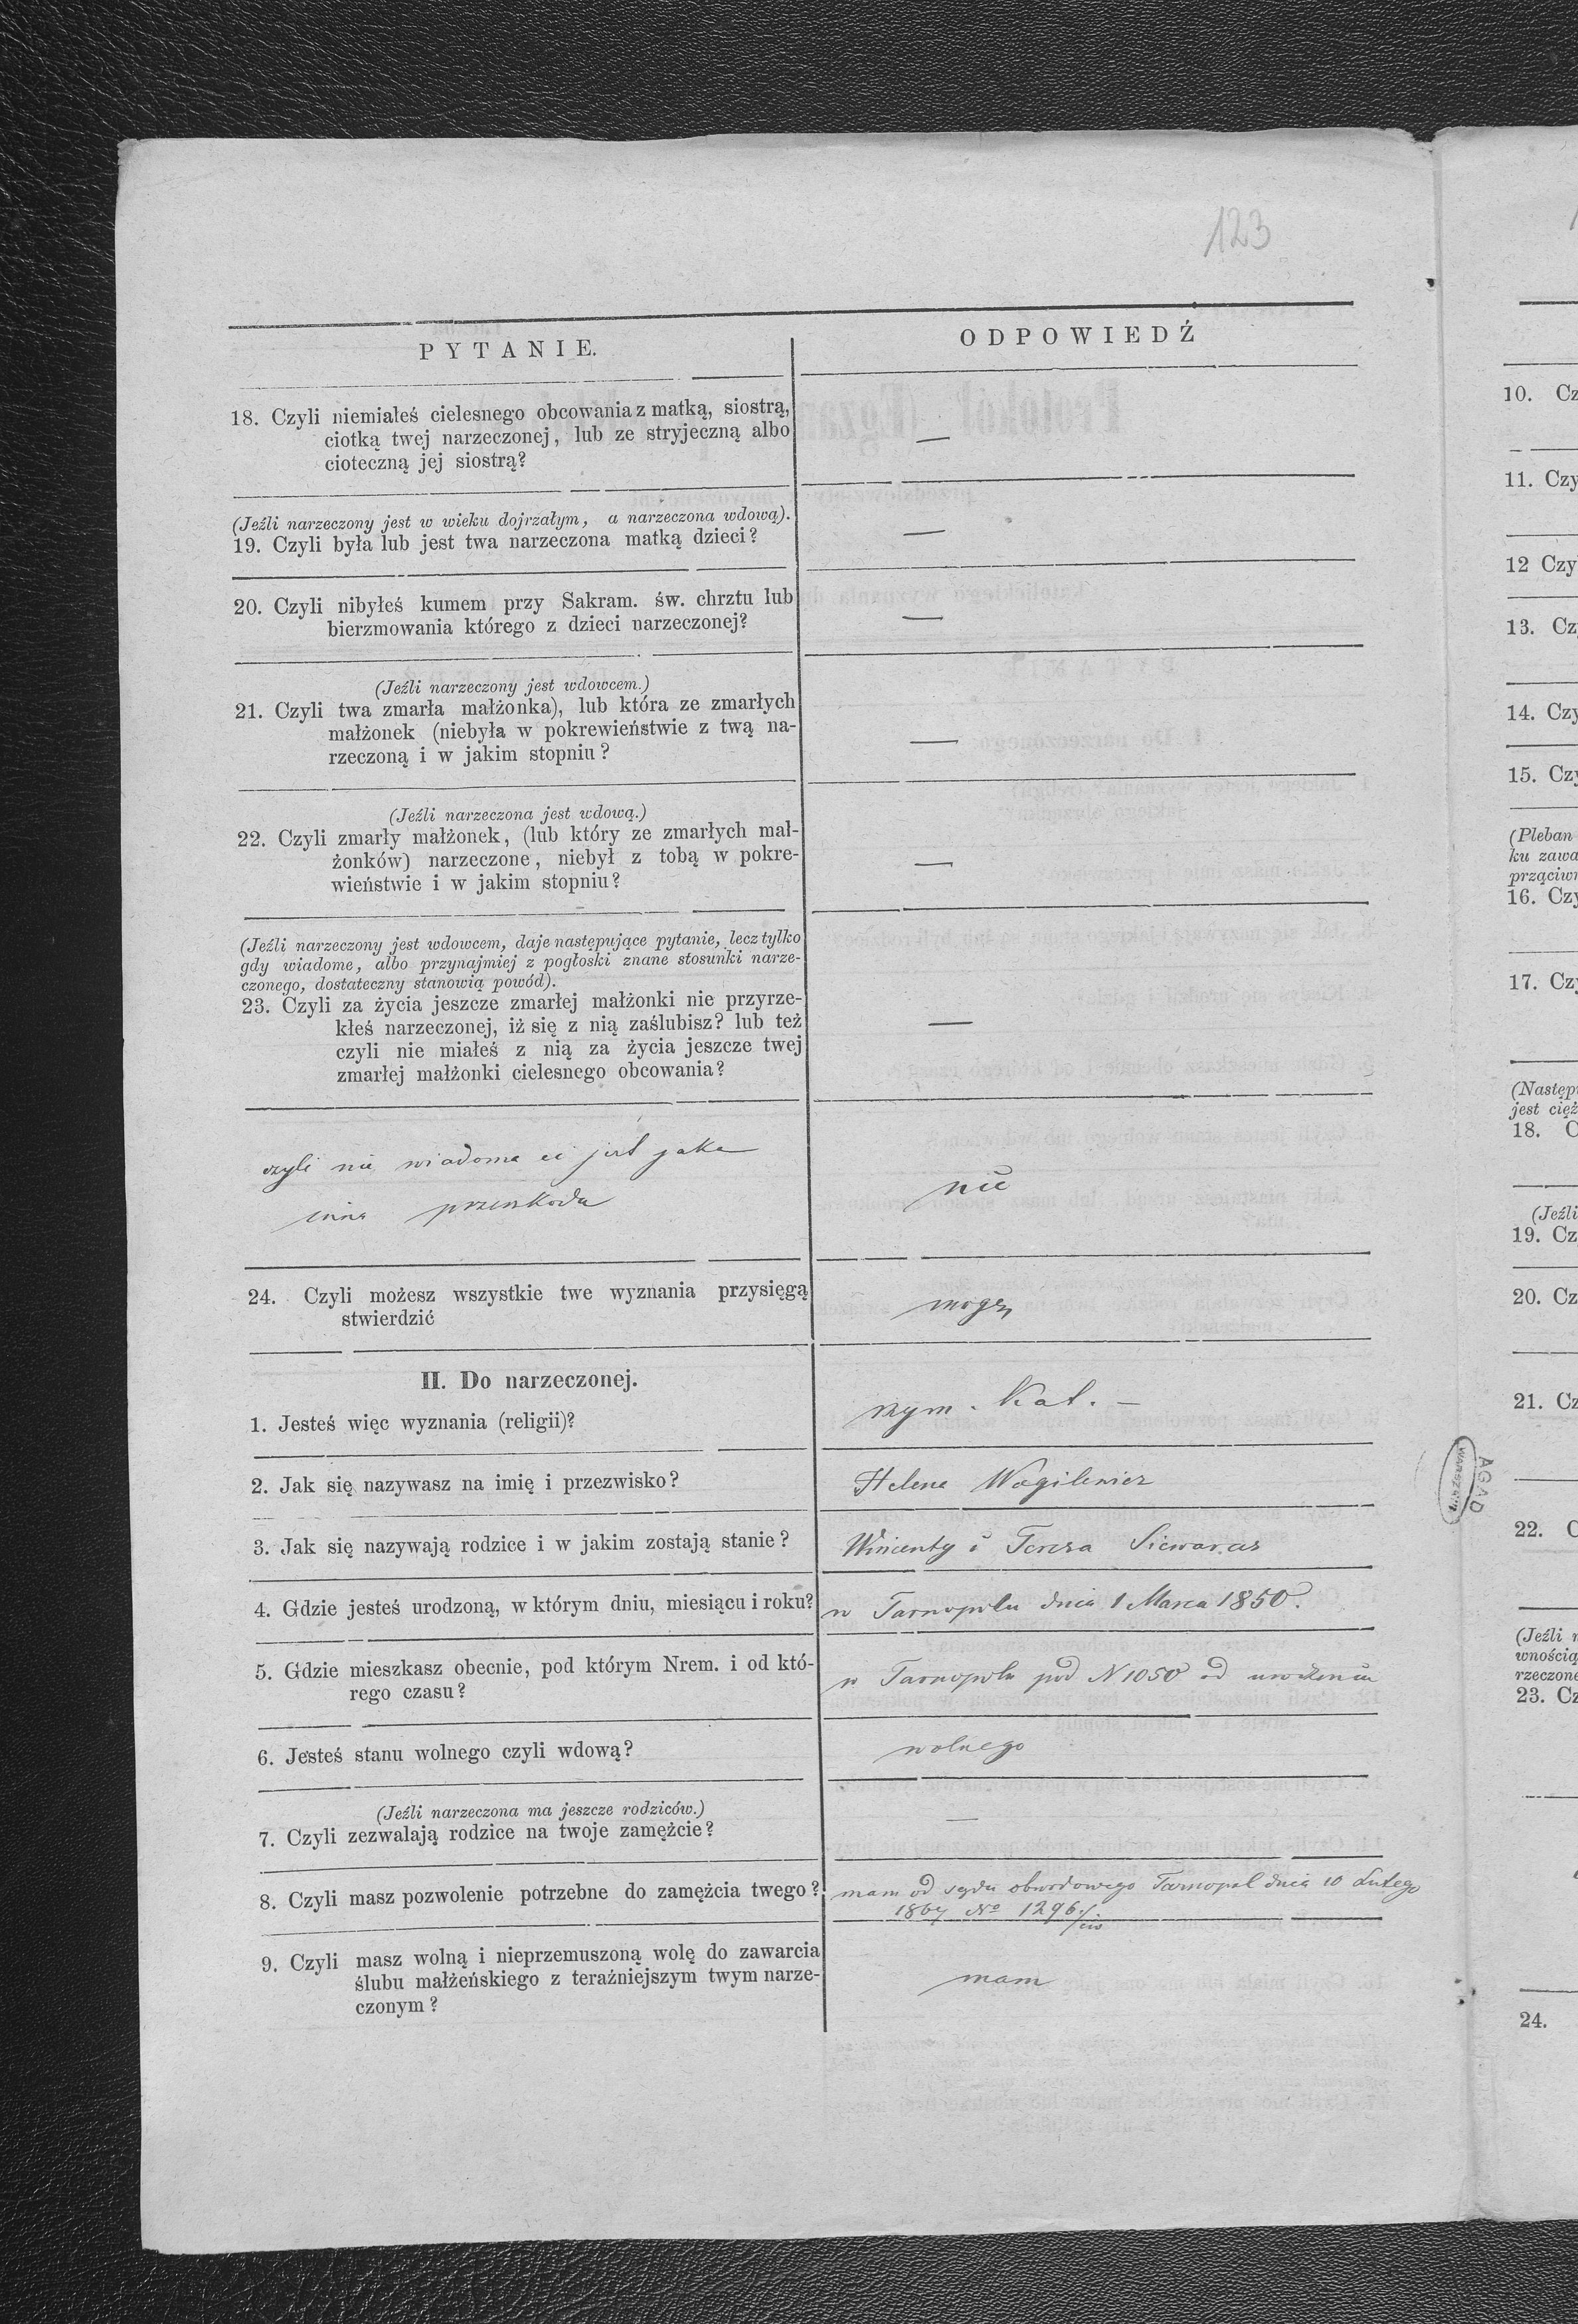 123
PYTANIE.
ODPOWIEDŹ
18. Czyli niemiałeś cielesnego obcowania z matką, siostrą,
ciotką twej narzeczonej, lub ze stryjeczną albo
cioteczną jej siostrą?
—
(Jeźli narzeczony jest w wieku dojrzałym, a narzeczona wdową).
19. Czyli była lub jest twa narzeczona matką dzieci?
—
20. Czyli nibyłeś kumem przy Sakram. św. chrztu lub
bierzmowania którego z dzieci narzeczonej?
—
(Jeźli narzeczony jest wdowcem.)
21. Czyli twa zmarła małżonka), lub która ze zmarłych
małżonek (niebyła w pokrewieństwie z twą na-
rzeczoną i w jakim stopniu?
—
(Jeźli narzeczona jest wdową.)
22. Czyli zmarły małżonek, (lub który ze zmarłych mał-
żonków) narzeczone, niebył z tobą w pokre-
wieństwie i w jakim stopniu?
—
(Jeźli narzeczony jest wdowcem, daje następujące pytanie, lecz tylko
gdy wiadome, albo przynajmiej z pogłoski znane stosunki narze-
czonego, dostateczny stanowią powód).
23. Czyli za życia jeszcze zmarłej małżonki nie przyrze-
kłeś narzeczonej, iż się z nią zaślubisz? lub też
czyli nie miałeś z nią za życia jeszcze twej
zmarłej małżonki cielesnego obcowania?
—
czyli nie wiadoma ci jest jaka
inna przeszkoda
nie
24. Czyli możesz wszystkie twe wyznania przysięgą
stwierdzić
mogę
II. Do narzeczonej.
1. Jesteś więc wyznania (religii)?
rzym. Kat. —
2. Jak się nazywasz na imię i przezwisko?
Helena Wagilewicz
3. Jak się nazywają rodzice i w jakim zostają stanie?
Wincenty i Teresa
4. Gdzie jesteś urodzoną, w którym dniu, miesiącu i roku?
w Tarnopolu dnia 1 Marca 1850.
5. Gdzie mieszkasz obecnie, pod którym Nrem. i od któ-
rego czasu?
w Tarnopolu pod N 1050 od urodzenia
6. Jesteś stanu wolnego czyli wdową?
wolnego
(Jeźli narzeczona ma jeszcze rodziców.)
7. Czyli zezwalają rodzice na twoje zamężcie?
—
8. Czyli masz pozwolenie potrzebne do zamężcia twego?
mam od sądu obwodowego Tarnopol dnia 10 Lutego
1867 No 1296/civ
9. Czyli masz wolną i nieprzemuszoną wolę do zawarcia
ślubu małżeńskiego z teraźniejszym twym narze-
czonym?
mam
AGAD
WARSZAWA
10. Cz
11. Czy
12 Czy
13. Cz
14. Czy
15. Czy
(Pleban
ku zawa
prząciwn
16. Czy
17. Czy
(Następ
jest cięż
18. C
(Jeźli
19. Cz
20. Cz
21. Cz
22. C
(Jeźli n
wnością
rzeczone
23. Cz
24.